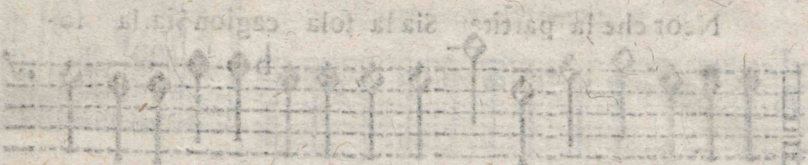 Ncor che la partita Sia la sola cagion Sia la